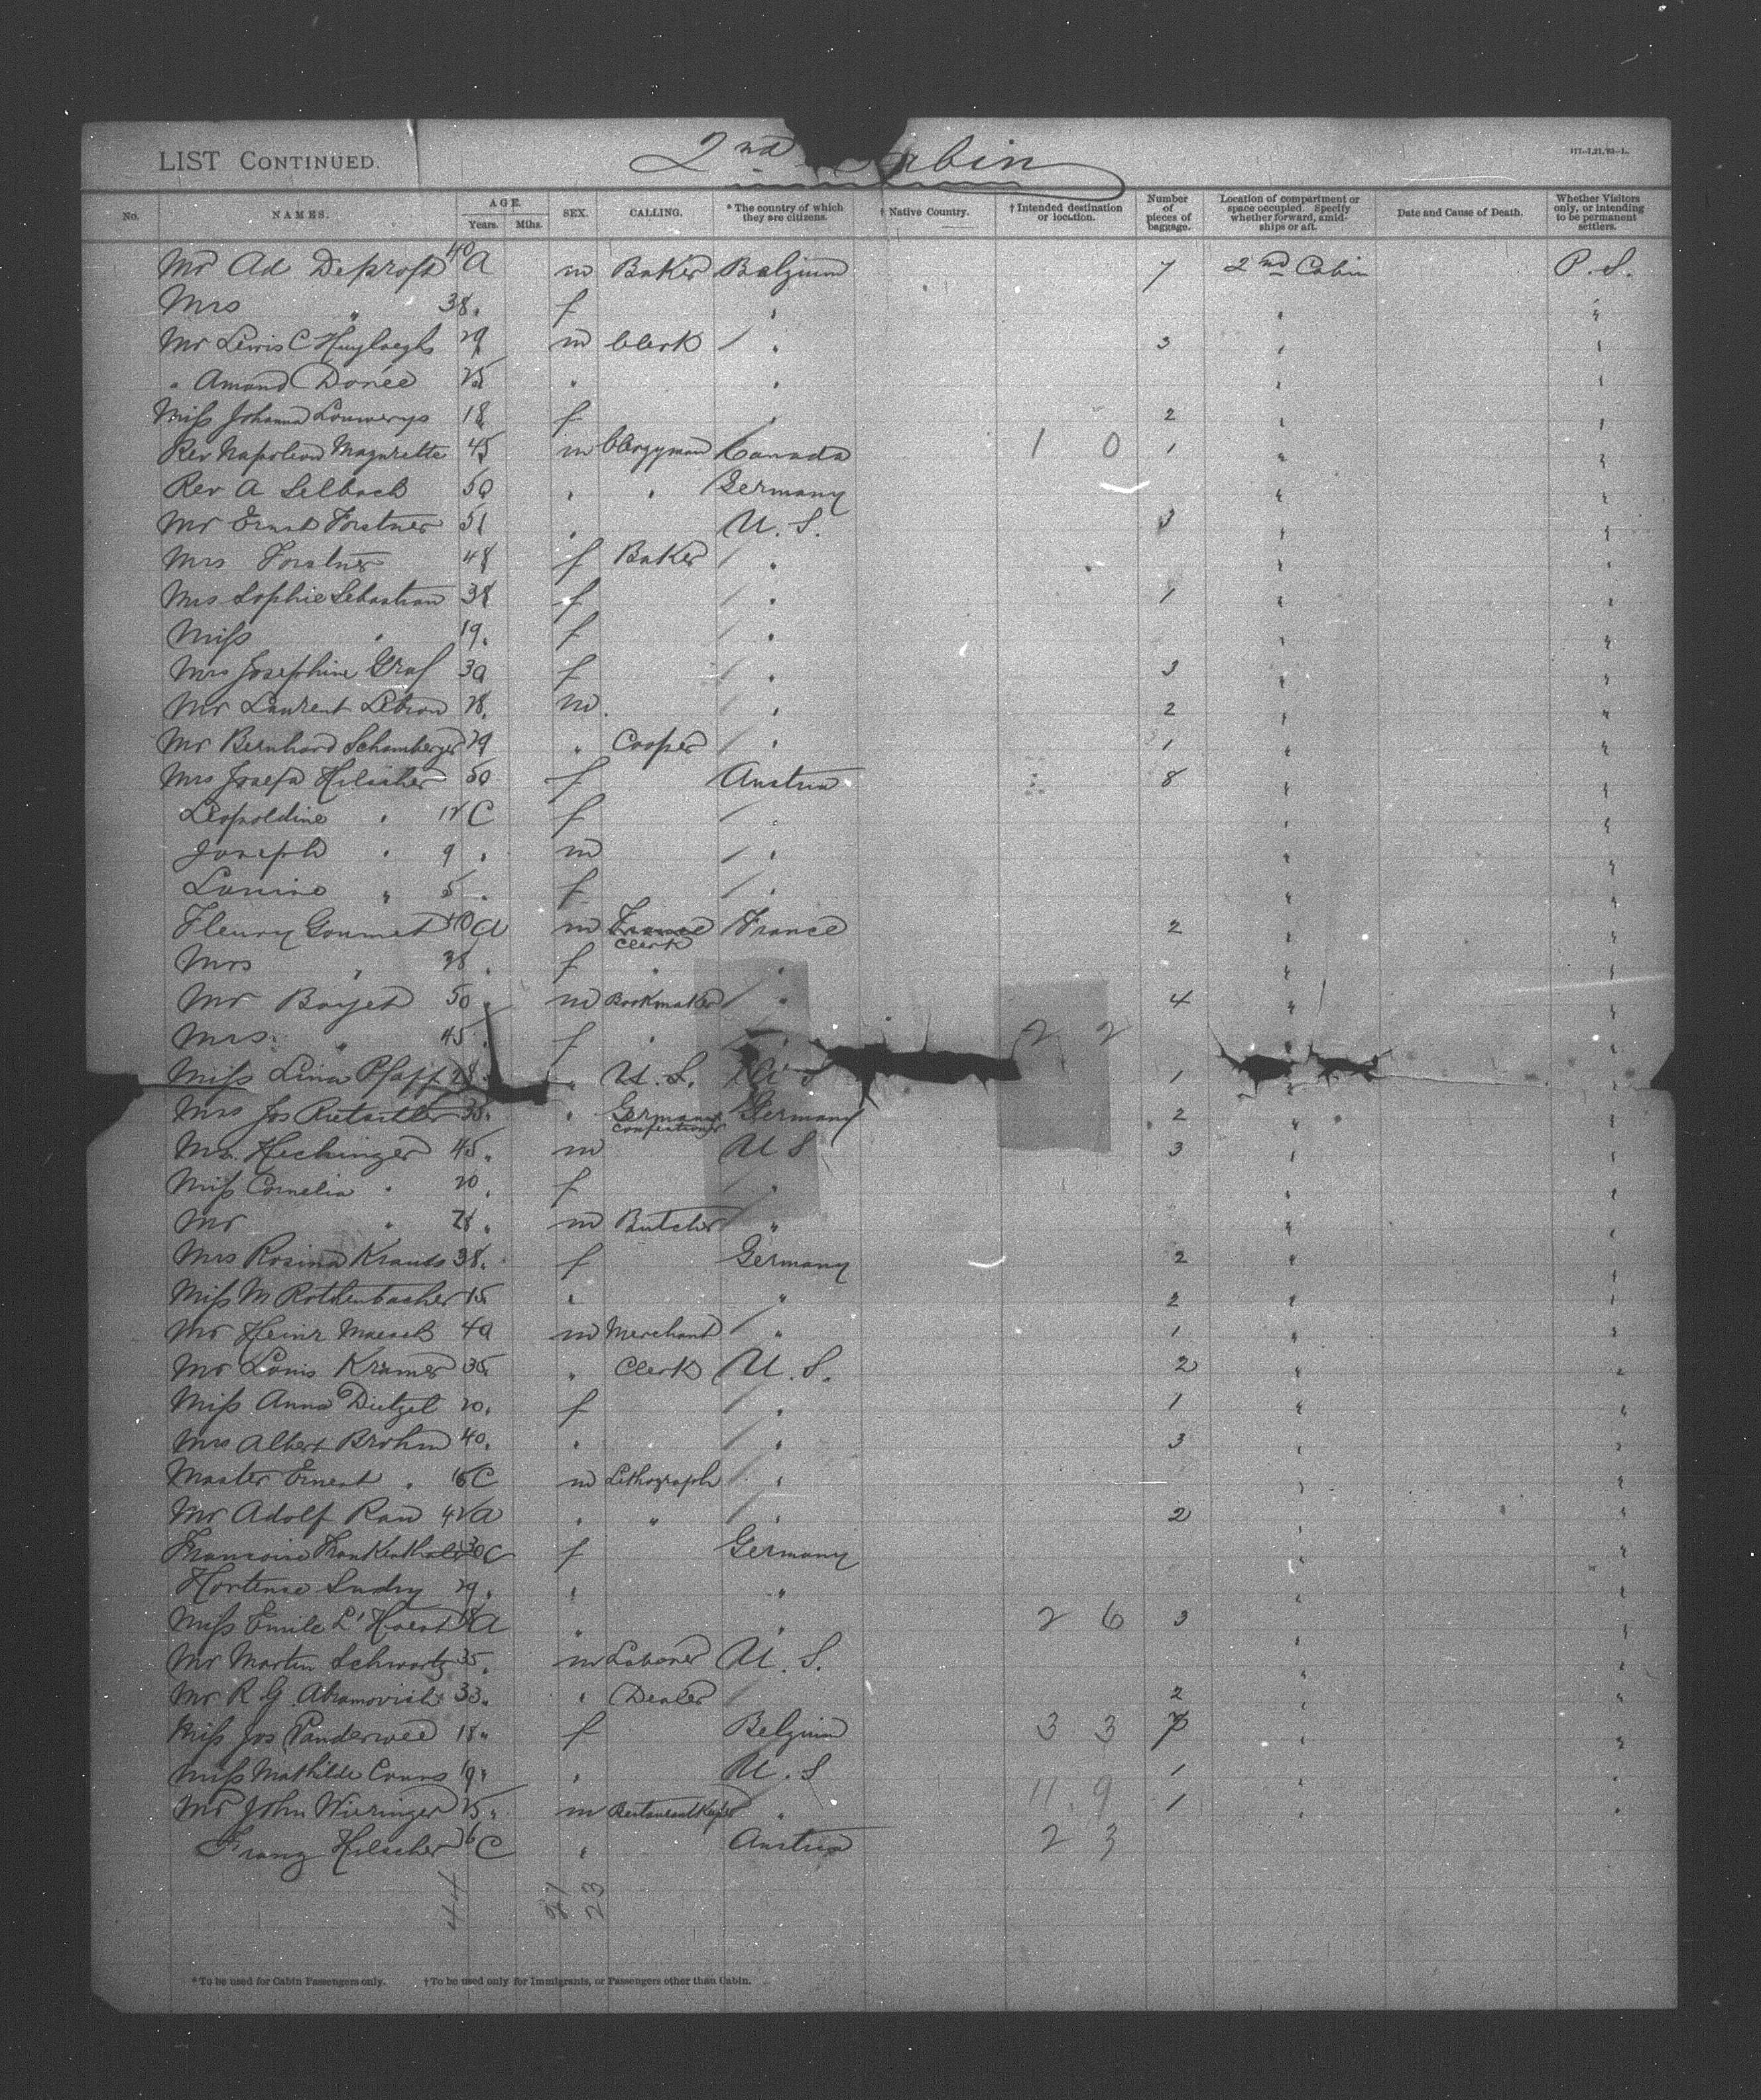 LIST CONTINUED.
2nd Cabin
117-7,21,'93-L.
No. NAMES. AGE. Years. Mths. SEX. CALLING. * The country of which they are citizens. † Native Country. † Intended destination or location. Number of pieces of baggage. Location of compartment or space occupied. Specify whether forward, amidships or aft. Date and Cause of Death. Whether Visitors only, or intending to be permanent settlers.
Mr Ad Deprost 40 A m Baker Belgium 7 2nd Cabin P. S.
Mrs " 38 " f " " "
Mr Lewis C 29 m Clerk / " 3 " "
" Amand Donee 25 " " " "
Miss Johanna Louwerys 18 f " 2 " "
Rev Napoleon Mazurette 45 m Clergyman Canada 1 0 1 " "
Rev A Selbach 50 " " Germany " "
Mr Ernst Forstner 51 " U. S. 3 " "
Mrs Forstner 48 f Baker / " " "
Mrs Sophie Sebastian 38 f / " 1 " "
Miss " 19 " f / " " "
Mrs Josephine Graf 30 f / " 3 " "
Mr Laurent Lebron 28 " m / " 2 " "
Mr Bernhard Schamberger 29 " Cooper / " 1 " "
Mrs Josefa Hilscher 50 f Austria 8 " "
Leopoldine " 12 C f / " " "
Joseph " 9 " m / " " "
" 5 " f / " " "
Fleury Gourmet 40 A m France Clerk France 2 " "
Mrs " 38 " f " " " "
Mr Bayet 50 " m Bookmaker / " 4 " "
Mrs " 45 " f " / " 2 2 " "
Miss Lina Pfaff 28 " " U. S. U S 1 " "
Mrs Jos 38 " " Germany Confectioner Germany 2 " "
Mr. Hechinger 45 " m U S 3 " "
Miss Cornelia " 20 " f / " " "
Mr " 28 " m Butcher / " " "
Mrs Rosina Krauts 38 " f Germany 2 " "
Miss M Rothenbacher 15 " " 2 " "
Mr Heinr 40 m Merchant / " 1 " "
Mr Louis Kramer 35 " Clerk U. S. 2 " "
Miss Anna Dietzel 20 " f / " 1 " "
Mrs Albert Brohm 40 " " / " 3 " "
Master Ernest " 16 C m Lithograph / " " "
Mr Adolf Rau 42 A " " / " 2 " "
Francoise Frankenthaler 30 C f Germany " "
Hortense 29 " " " " "
Miss Emile L'Hoest 18 A " " 2 6 3 " "
Mr Martin Schwartz 35 " m Laborer U. S. " "
Mr R G Abramovich 33 " " Dealer / 2 " "
Miss Jos Vanderwee 18 " f Belgium 3 3 7 " "
Miss Mathilde Evans 19 " " U. S 1 " "
Mr John Wieringer 25 " m Restaurant Keeper / " 11. 9 1 " "
Franz Hilscher 16 C " Austria 2 3
44 21 23
* To be used for Cabin Passengers only. † To be used only for Immigrants, or Passengers other than Cabin.